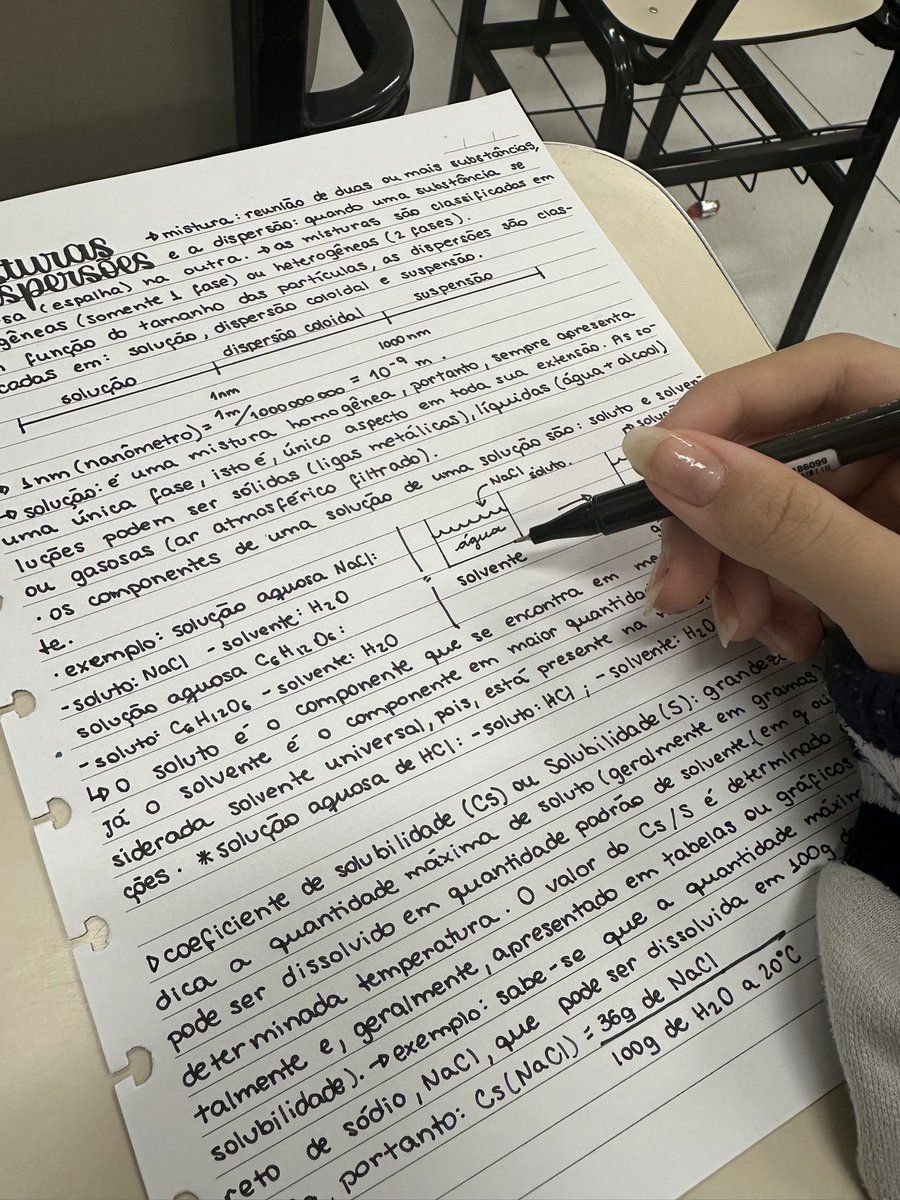 / /
→ mistura: reunião de duas ou mais substâncias,
sturas
spersões e a dispersão: quando uma substância se
sa (espalha) na outra. → as misturas são classificadas em
gêneas (somente 1 fase) ou heterogêneas (2 fases).
função do tamanho das partículas, as dispersões são clas-
cadas em: solução, dispersão coloidal e suspensão.
solução dispersão coloidal suspensão
1nm 1000nm
→ 1nm (nanômetro) = 1m/1000000000 = 10⁻⁹ m.
→ solução: é uma mistura homogênea, portanto, sempre apresenta
uma única fase, isto é, único aspecto em toda sua extensão. As so-
luções podem ser sólidas (ligas metálicas), líquidas (água + alcool)
ou gasosas (ar atmosférico filtrado).
· os componentes de uma solução de uma solução são: soluto e solven
te.
NaCl soluto.
água
solvente
· exemplo: solução aquosa NaCl:
- soluto: NaCl - solvente: H₂O
solução aquosa C₆H₁₂O₆:
- soluto: C₆H₁₂O₆ - solvente: H₂O
↳ O soluto é o componente que se encontra em me
Já o solvente é o componente em maior quantida
siderada solvente universal, pois, está presente na
ções. * solução aquosa de HCl: - soluto: HCl ; - solvente: H₂O
▷ coeficiente de solubilidade (Cs) ou Solubilidade (S): grandeza
dica a quantidade máxima de soluto (geralmente em gramas)
pode ser dissolvido em quantidade padrão de solvente. (em g ou
determinada temperatura. O valor do Cs/S é determinado
talmente e, geralmente, apresentado em tabelas ou gráficos
solubilidade). → exemplo: sabe-se que a quantidade máxim
reto de sódio, NaCl, que pode ser dissolvida em 100g
, portanto: Cs (NaCl) = 36g de NaCl
100g de H₂O a 20°C
186099